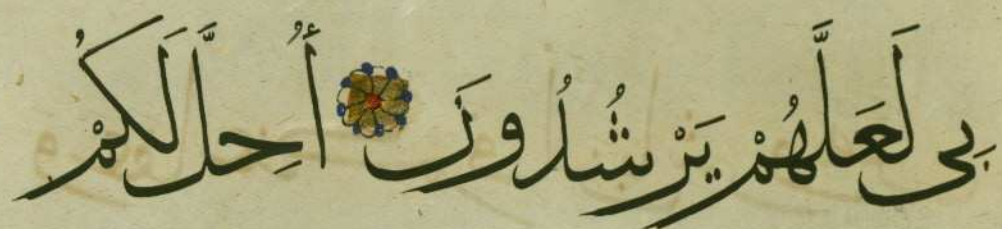 بِى لَعَلَّهُمْ يَرْشُدُونَ أُحِلَّ لَكُمْ